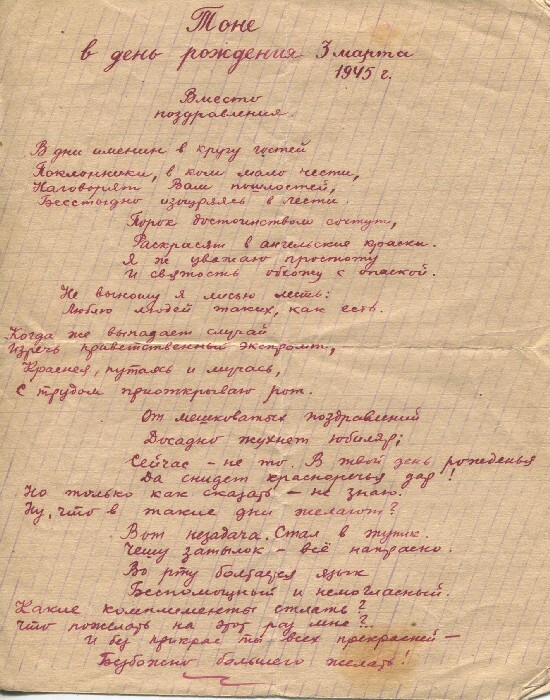 Тоне
в день рождения 3 марта
1945 г.
Вместо
поздравления.
В дни именин в кругу гостей
Поклонники, в ком мало чести,
Наговорят Вам пошлостей,
Бесстыдно изощряясь в лести.
Порок достоинством сочтут,
Раскрасят в ангельские краски.
Я же уважаю простоту
И святость обхожу с опаской.
Не выношу я лисью лесть:
Люблю людей таких, как есть.
Когда же выпадает случай
Изречь приветственный экспромт,
Краснея, путаясь и мучась,
С трудом приоткрываю рот.
От мешковатых поздравлений
Досадно жухнет юбиляр;
Сейчас - не то. В твой день рожденья
Да снидет красноречья дар!
Но только как сказать - не знаю.
Ну, что в такие дни желают?
Вот незадача. Стал в тупик.
Чешу затылок - всё напрасно.
Во рту болтается язык
Беспомощный и немогласный.
Какие комплименты стлать?
Что пожелать на этот раз мне?
И без прикрас ты всех прекрасней -
Безбожно большего желать!